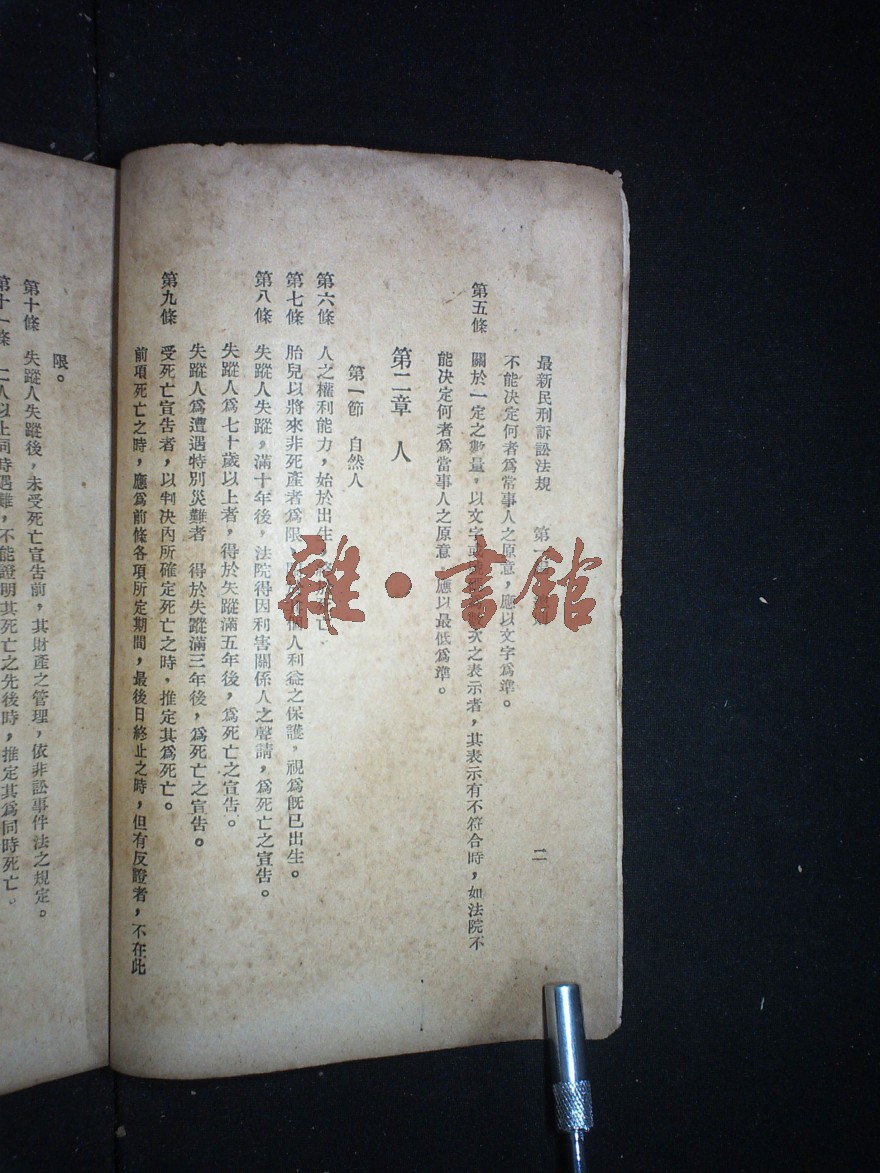 最新民刑訴訟法規 第
二
不能決定何者爲常事人之原意，應以文字爲準。
第五條 關於一定之數量，以文字 次之表示者，其表示有不符合時，如法院不
能決定何者爲當事人之原意 應以最低爲準。
第二章 人
第一節 自然人
第六條 人之權利能力，始於出生 亡
第七條 胎兒以將來非死產者爲限 個人利益之保護，視爲旣已出生。
第八條 失蹤人失蹤，滿十年後，法院得因利害關係人之聲請，爲死亡之宣告。
失蹤人爲七十歲以上者，得於失蹤滿五年後，爲死亡之宣告。
失蹤人爲遭遇特別災難者 得於失蹤滿三年後，爲死亡之宣告。
第九條 受死亡宣告者，以判決內所確定死亡之時，推定其爲死亡。
前項死亡之時，應爲前條各項所定期間，最後日終止之時，但有反證者，不在此
限。
第十條 失蹤人失蹤後，未受死亡宣告前，其財產之管理，依非訟事件法之規定。
第十一條 二人以上同時遇難，不能證明其死亡之先後時，推定其爲同時死亡。
雜·書館